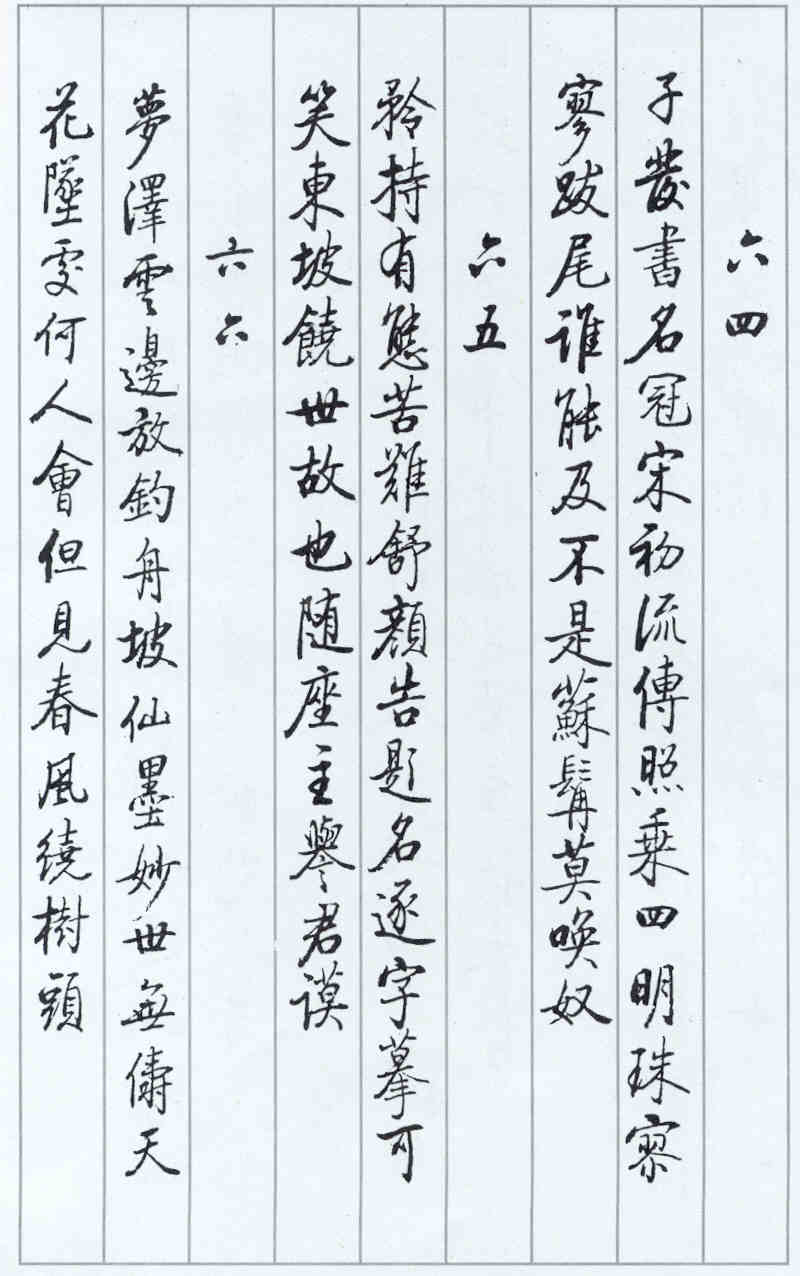 六四
子發書名冠宋初流傳照乘四明珠寥
寥跋尾誰能及不是蘇髯莫喚奴
六五
矜持有態苦難舒顏告題名逐字摹可
笑東坡饒世故也隨座主譽君謨
六六
夢澤雲邊放釣舟坡仙墨妙世無儔天
花墜處何人會但見春風繞樹頭